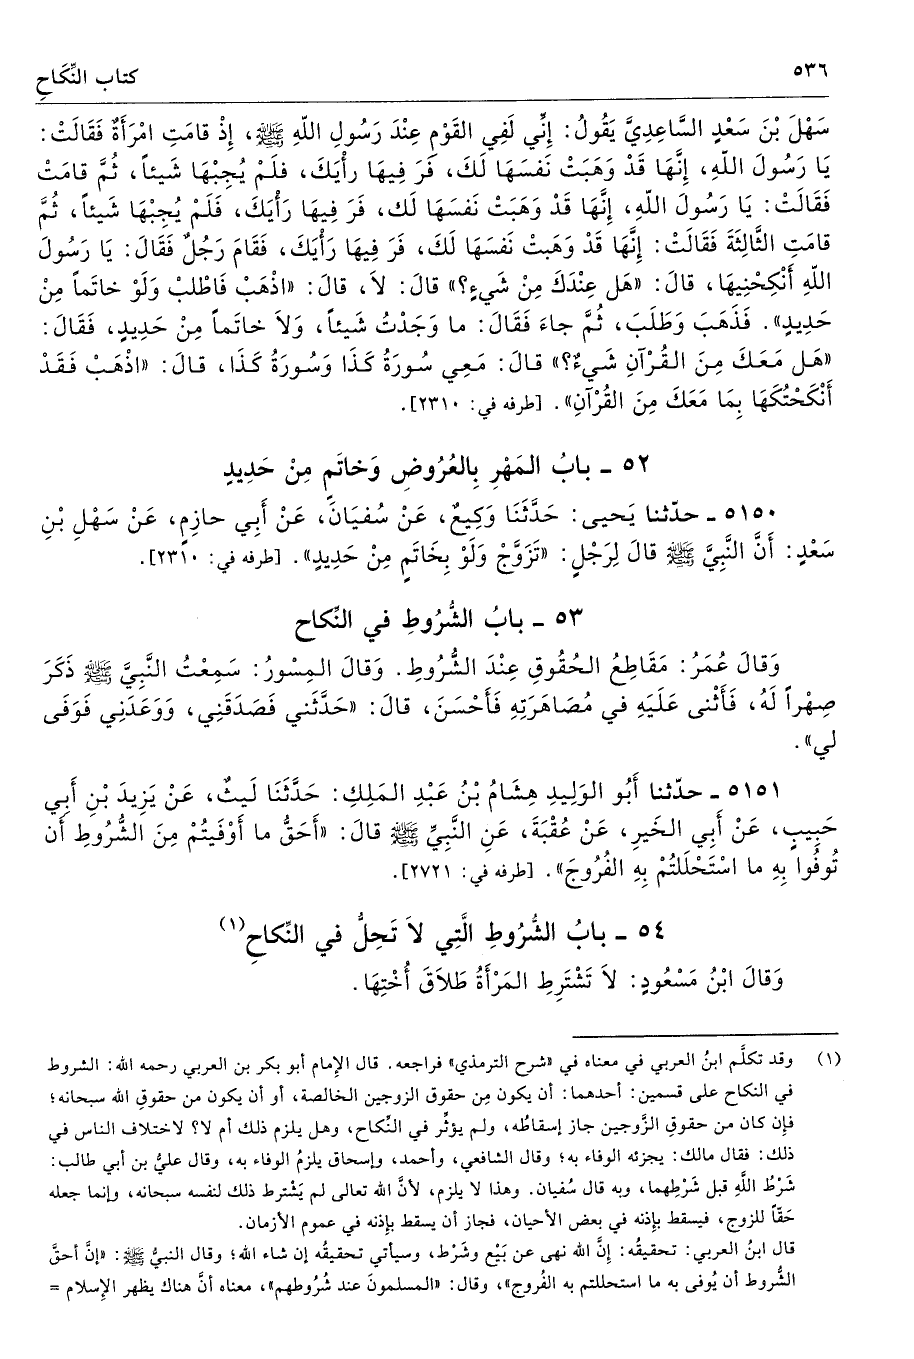 ٥٣٦
كتاب النِّكَاحِ
سَهْلَ بْنَ سَعْدٍ السَّاعِدِيَّ يَقُولُ: إِنِّي لَفِي القَوْمِ عِنْدَ رَسُولِ اللهِ ﷺ، إِذْ قامَتِ امْرَأَةٌ فَقَالَتْ:
يَا رَسُولَ اللهِ، إِنَّهَا قَدْ وَهَبَتْ نَفسَهَا لَكَ، فَرَ فِيهَا رأْيَكَ، فلَمْ يُجِبْهَا شَيئاً، ثُمَّ قامَتْ
فَقَالَتْ: يَا رَسُولَ اللهِ، إِنَّهَا قَدْ وَهَبَتْ نَفسَهَا لَك، فَرَ فِيهَا رَأْيَكَ، فَلَمْ يُجِبْهَا شَيئاً، ثُمَّ
قامَتِ الثَّالِثَةَ فَقَالَتْ: إِنَّهَا قَدْ وَهَبَتْ نَفسَهَا لَكَ، فَرَ فِيهَا رَأْيَكَ، فَقَامَ رَجُلٌ فَقَالَ: يَا رَسُولَ
اللهِ أَنْكِحْنِيهَا، قالَ: «هَل عِنْدَكَ مِنْ شَيءٍ؟» قالَ: لاَ، قالَ: «اذْهَبْ فَاطْلبْ وَلَوْ خاتَماً مِنْ
حَدِيدٍ». فَذَهَبَ وَطَلَبَ، ثُمَّ جاءَ فَقَالَ: ما وَجَدْتُ شَيئاً، وَلاَ خاتَماً مِنْ حَدِيدٍ، فَقَالَ:
«هَل مَعَكَ مِنَ القُرْآنِ شَيءٌ؟» قالَ: مَعِي سُورَةُ كَذَا وَسُورَةُ كَذَا، قالَ: «اذْهَبْ فَقَدْ
أَنْكَحْتُكَهَا بِمَا مَعَكَ مِنَ القُرْآنِ». [طرفه في: ٢٣١٠].
٥٢ ـ بابُ المَهْرِ بِالعُرُوضِ وَخاتَمٍ مِنْ حَدِيدٍ
٥١٥٠ ـ حدّثنا يَحيى: حَدَّثَنَا وَكِيعٌ، عَنْ سُفيَانَ، عَنْ أَبِي حازِمٍ، عَنْ سَهْلِ بْنِ
سَعْدٍ: أَنَّ النَّبِيَّ ﷺ قالَ لِرَجُلٍ: «تَزَوَّجْ وَلَوْ بِخَاتَمٍ مِنْ حَدِيدٍ». [طرفه في: ٢٣١٠].
٥٣ ـ بابُ الشُّرُوطِ في النِّكاح
وَقالَ عُمَرُ: مَقَاطِعُ الحُقُوقِ عِنْدَ الشُّرُوطِ. وَقالَ المِسْورُ: سَمِعْتُ النَّبِيَّ ﷺ ذَكَرَ
صِهْراً لَهُ، فَأَثْنى عَلَيَهِ في مُصَاهَرَتِهِ فَأَحْسَنَ، قالَ: «حَدَّثَني فَصَدَقَنِي، وَوَعَدَنِي فَوَفَى
لي».
٥١٥١ ـ حدّثنا أَبُو الوَلِيدِ هِشَامُ بْنُ عَبْدِ المَلِكِ: حَدَّثَنَا لَيثٌ، عَنْ يَزِيدَ بْنِ أَبِي
حَبِيبٍ، عَنْ أَبِي الخَيرِ، عَنْ عُقْبَةَ، عَنِ النَّبِيِّ ﷺ قالَ: «أَحَقُّ ما أَوْفَيتُمْ مِنَ الشُّرُوطِ أَن
تُوفُوا بِهِ ما اسْتَحْلَلتُمْ بِهِ الفُرُوجَ». [طرفه في: ٢٧٢١].
٥٤ ـ بابُ الشُّرُوطِ الَّتِي لاَ تَحِلُّ في النِّكاحِ(١)
وَقالَ ابْنُ مَسْعُودٍ: لاَ تَشْتَرِطِ المَرْأَةُ طَلاَقَ أُخْتِهَا.
(١) وقد تكلَّم ابنُ العربي في معناه في «شرح الترمذي» فراجعه. قال الإِمام أبو بكر بن العربي رحمه الله: الشروط
في النكاح على قسمين: أحدهما: أن يكون مِن حقوق الزوجين الخالصة، أو أن يكون من حقوقِ الله سبحانه؛
فإن كان من حقوقِ الزَّوجين جاز إسقاطُه، ولم يؤثِّر في النِّكاح، وهل يلزم ذلك أم لا؟ لاختلاف الناس في
ذلك: فقال مالك: يجزئه الوفاء به؛ وقال الشافعي، وأحمد، وإسحاق يلزمُ الوفاء به، وقال عليُّ بن أبي طالب:
شَرْطُ اللَّهِ قبل شَرْطِهما، وبه قال سُفيان. وهذا لا يلزم، لأنَّ الله تعالى لم يَشْترط ذلك لنفسه سبحانه، وإنما جعله
حَقّاً للزوج، فيسقط بإِذنه في بعض الأحيان، فجاز أن يسقط بإذنه في عموم الأزمان.
قال ابنُ العربي: تحقيقُه: إنَّ الله نهى عن بَيْع وشَرْط، وسيأتي تحقيقُه إن شاء الله؛ وقال النبيُّ ﷺ: «إنَّ أحقَّ
الشُّروط أن يُوفى به ما استحللتم به الفُروج»، وقال: «المسلمونَ عند شُرُوطهم»، معناه أنَّ هناك يظهر الإِسلام =